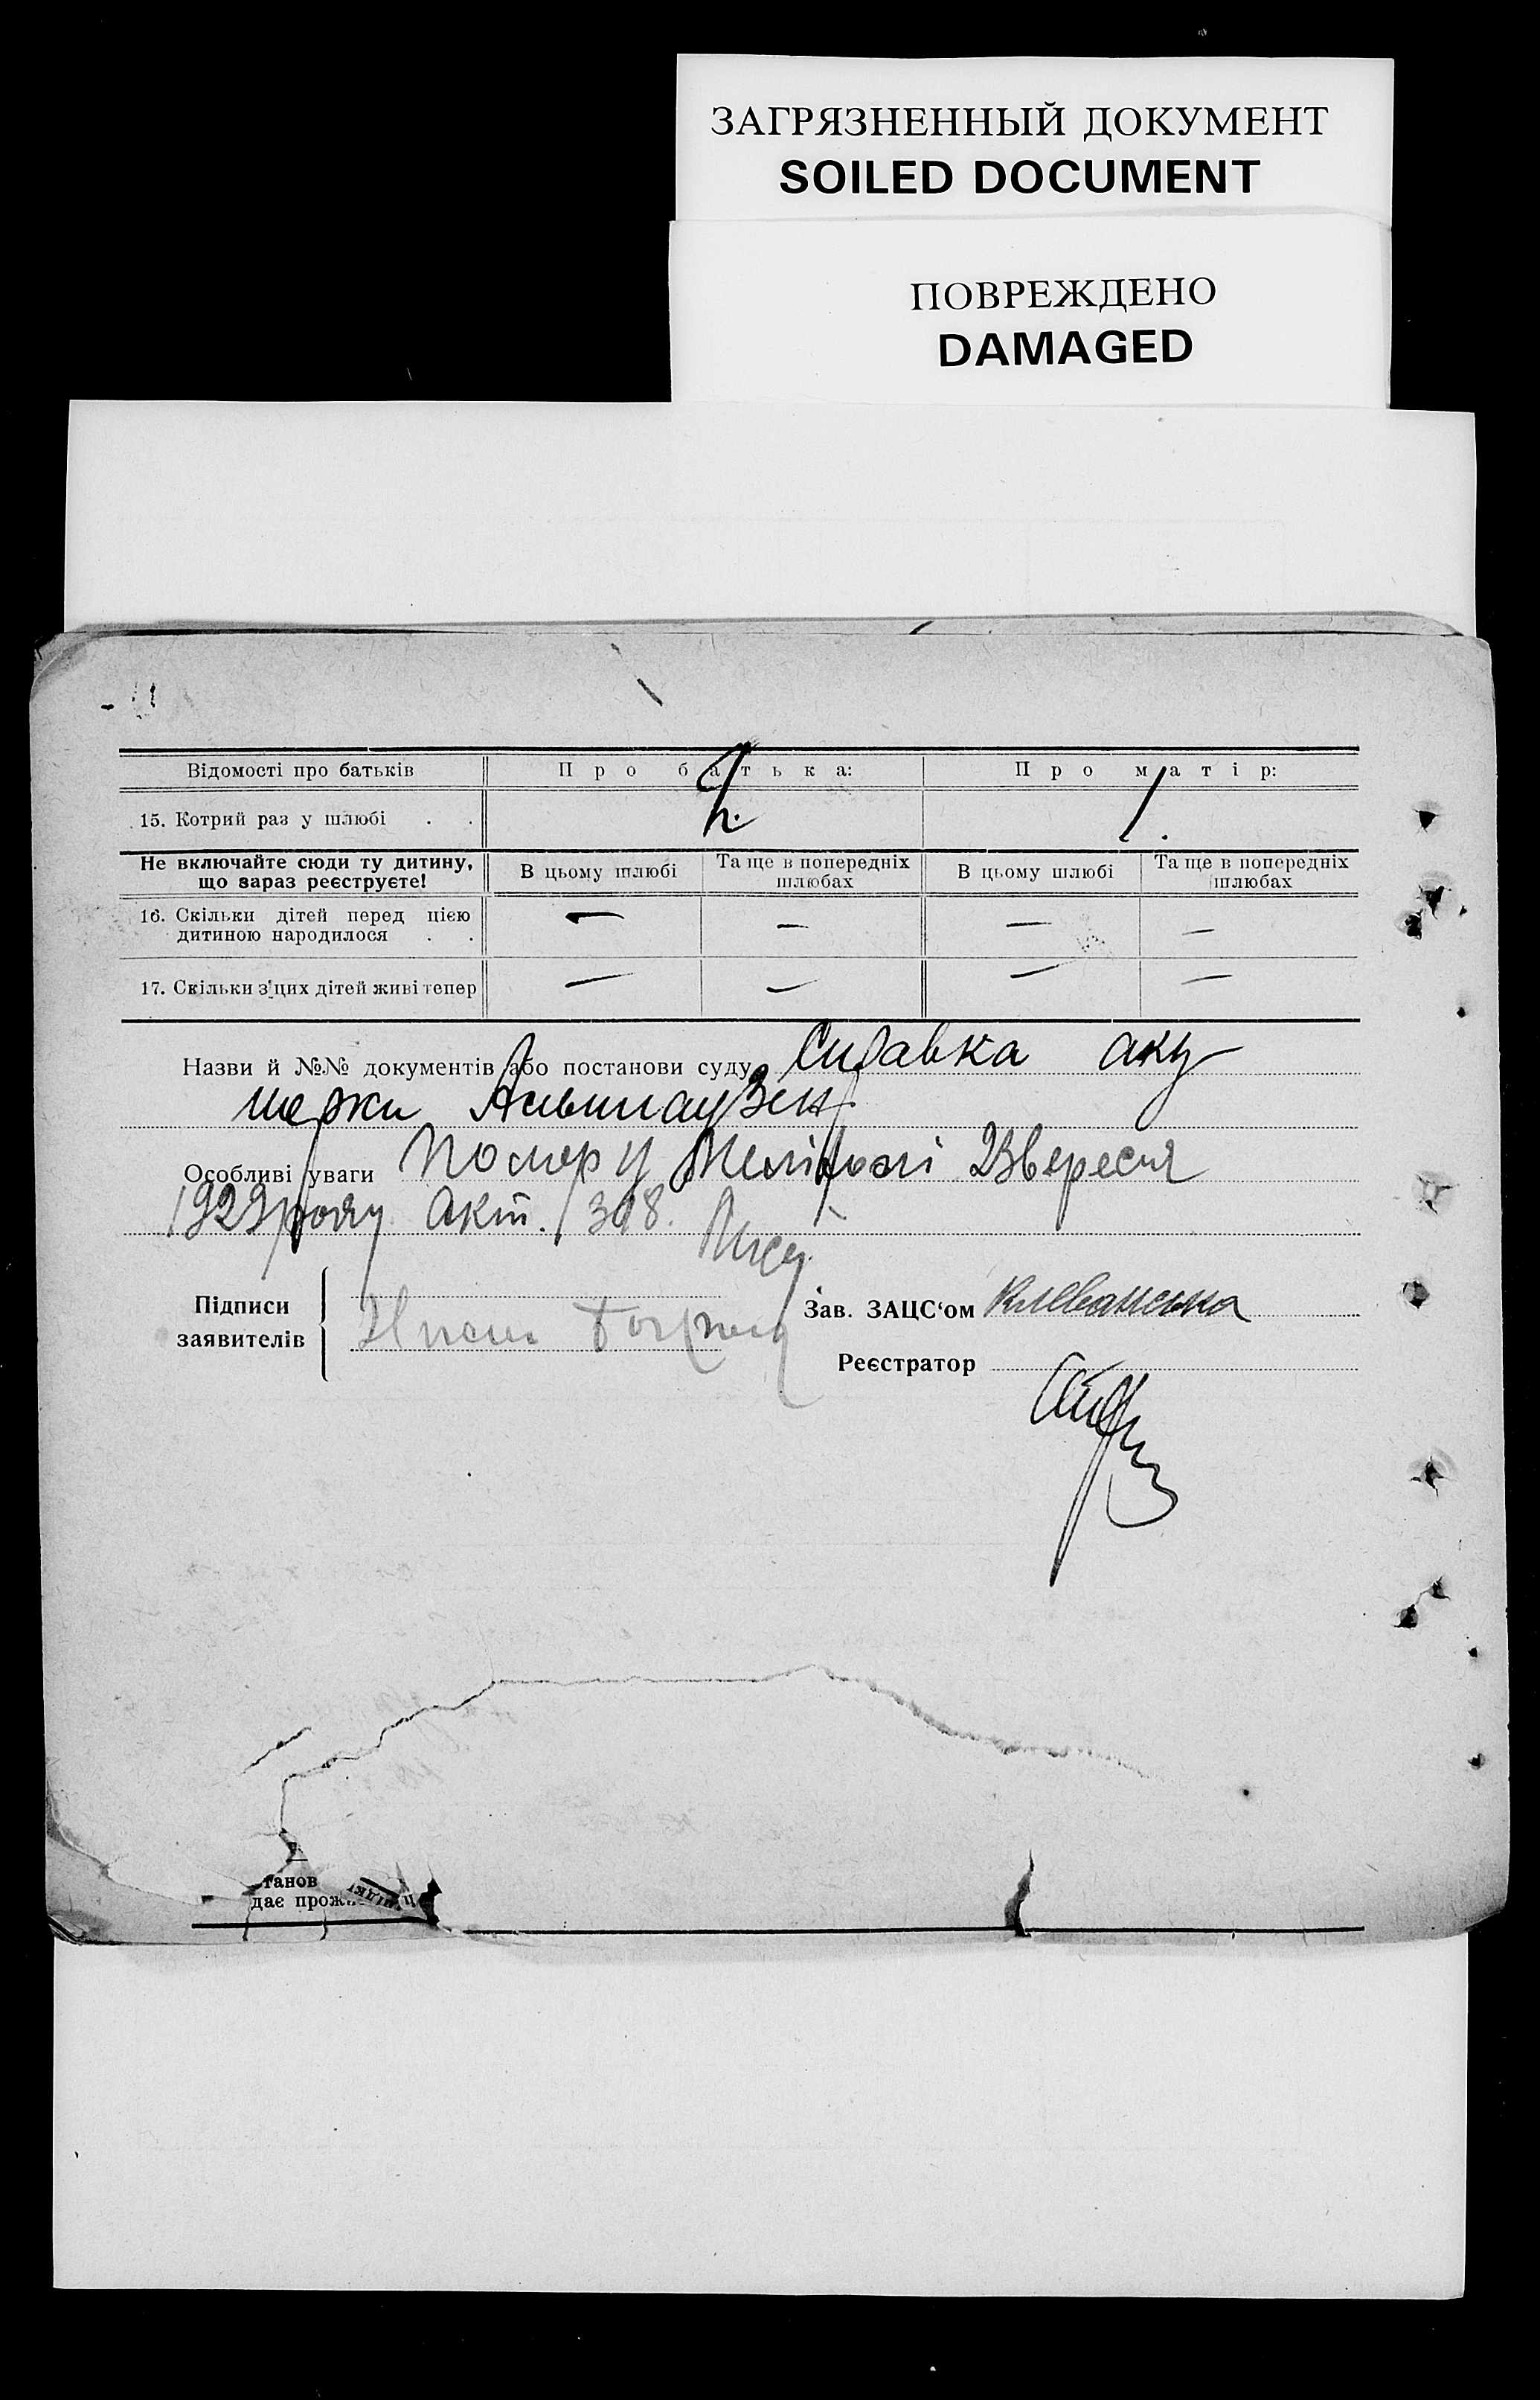 ЗАГРЯЗНЕННЫЙ ДОКУМЕНТ
SOILED DOCUMENT
ПОВРЕЖДЕНО
DAMAGED
Відомості про батьків Про батька: Про матір:
15. Котрий раз у шлюбі . . 2. 1.
Не включайте сюди ту дитину, що зараз реєструєте! В цьому шлюбі Та ще в попередніх шлюбах В цьому шлюбі Та ще в попередніх шлюбах
16. Скільки дітей перед цією дитиною народилося . . — — — —
17. Скільки з'цих дітей живі тепер — — — —
Назви й №№ документів або постанови суду Справка аку-
шерки
Особливі уваги Помер у Меліполі 23 вересня
1929 року Акт. 398.
Підписи заявителів
Зав. ЗАЦС'ом
Реєстратор
танов
дає прож